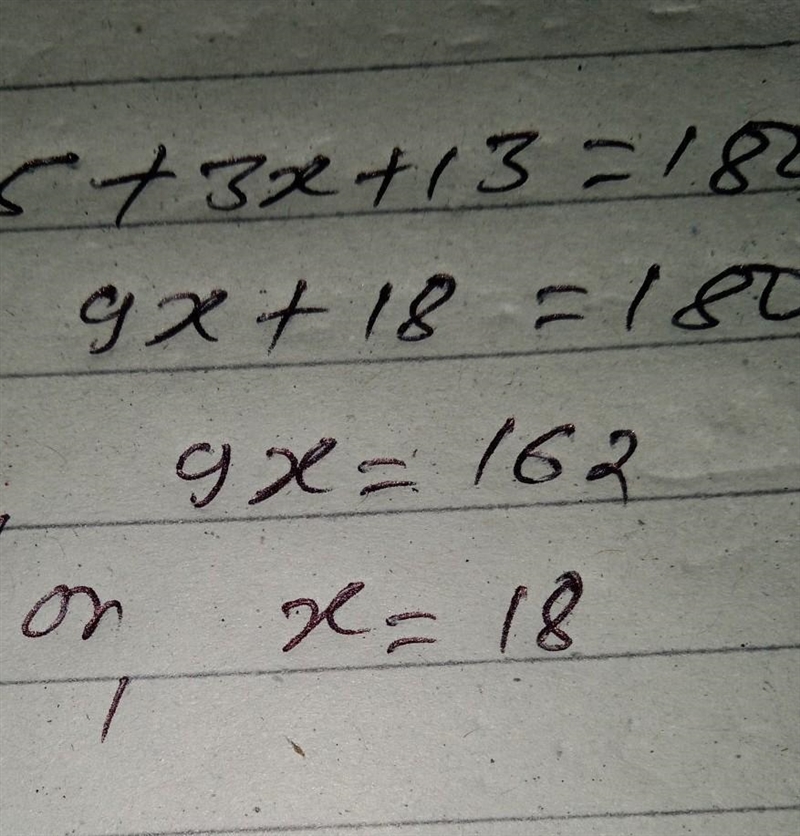 5 + 3x + 13 = 180
9x + 18 = 180
9x = 162
or, x = 18